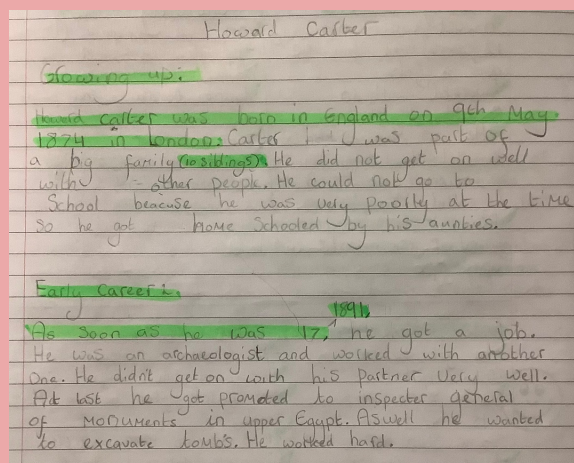 Howard Carter
Growing up:
Howard Carter was born in England on 9th May
1874 in London. Carter was part of
a big family (10 siblings). He did not get on well
with other people. He could not go to
School beacuse he was very poorly at the time
so he got home schooled by his aunties.
Early Career:
1891,
As soon as he was 17, he got a job.
He was an archaeologist and worked with anbther
one. He didn't get on with his partner very well.
At last he got promoted to inspecter general
of Monuments in upper Egypt. Aswell he wanted
to excavate tombs. He worked hard.